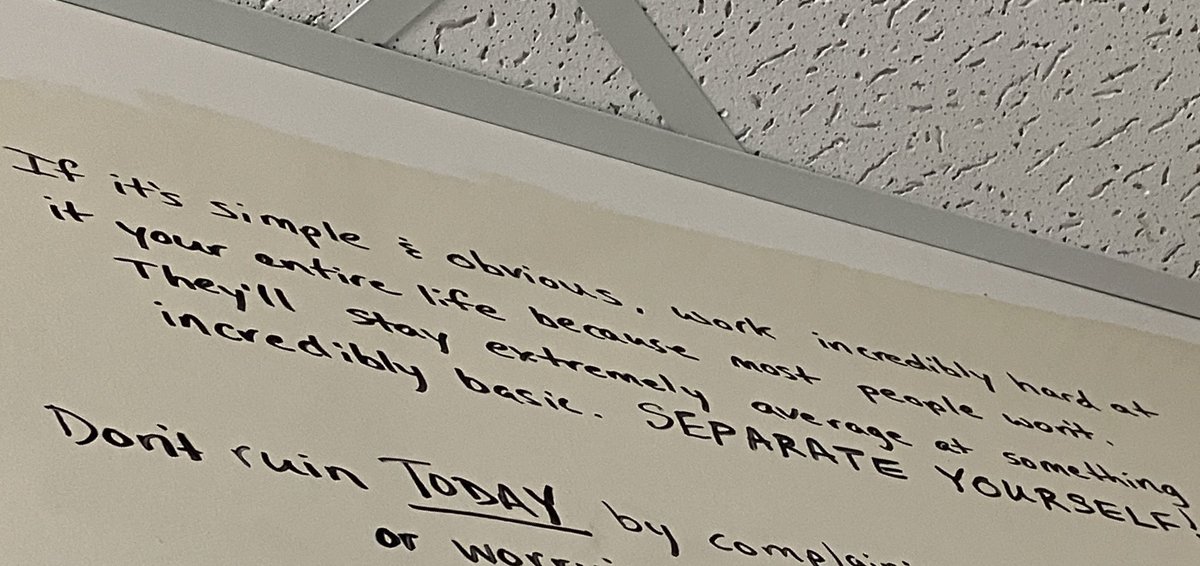 If it's simple & obvious, work incredibly hard at
it your entire life because most people won't.
They'll stay extremely average at something
incredibly basic. SEPARATE YOURSELF!
Don't ruin TODAY by
or